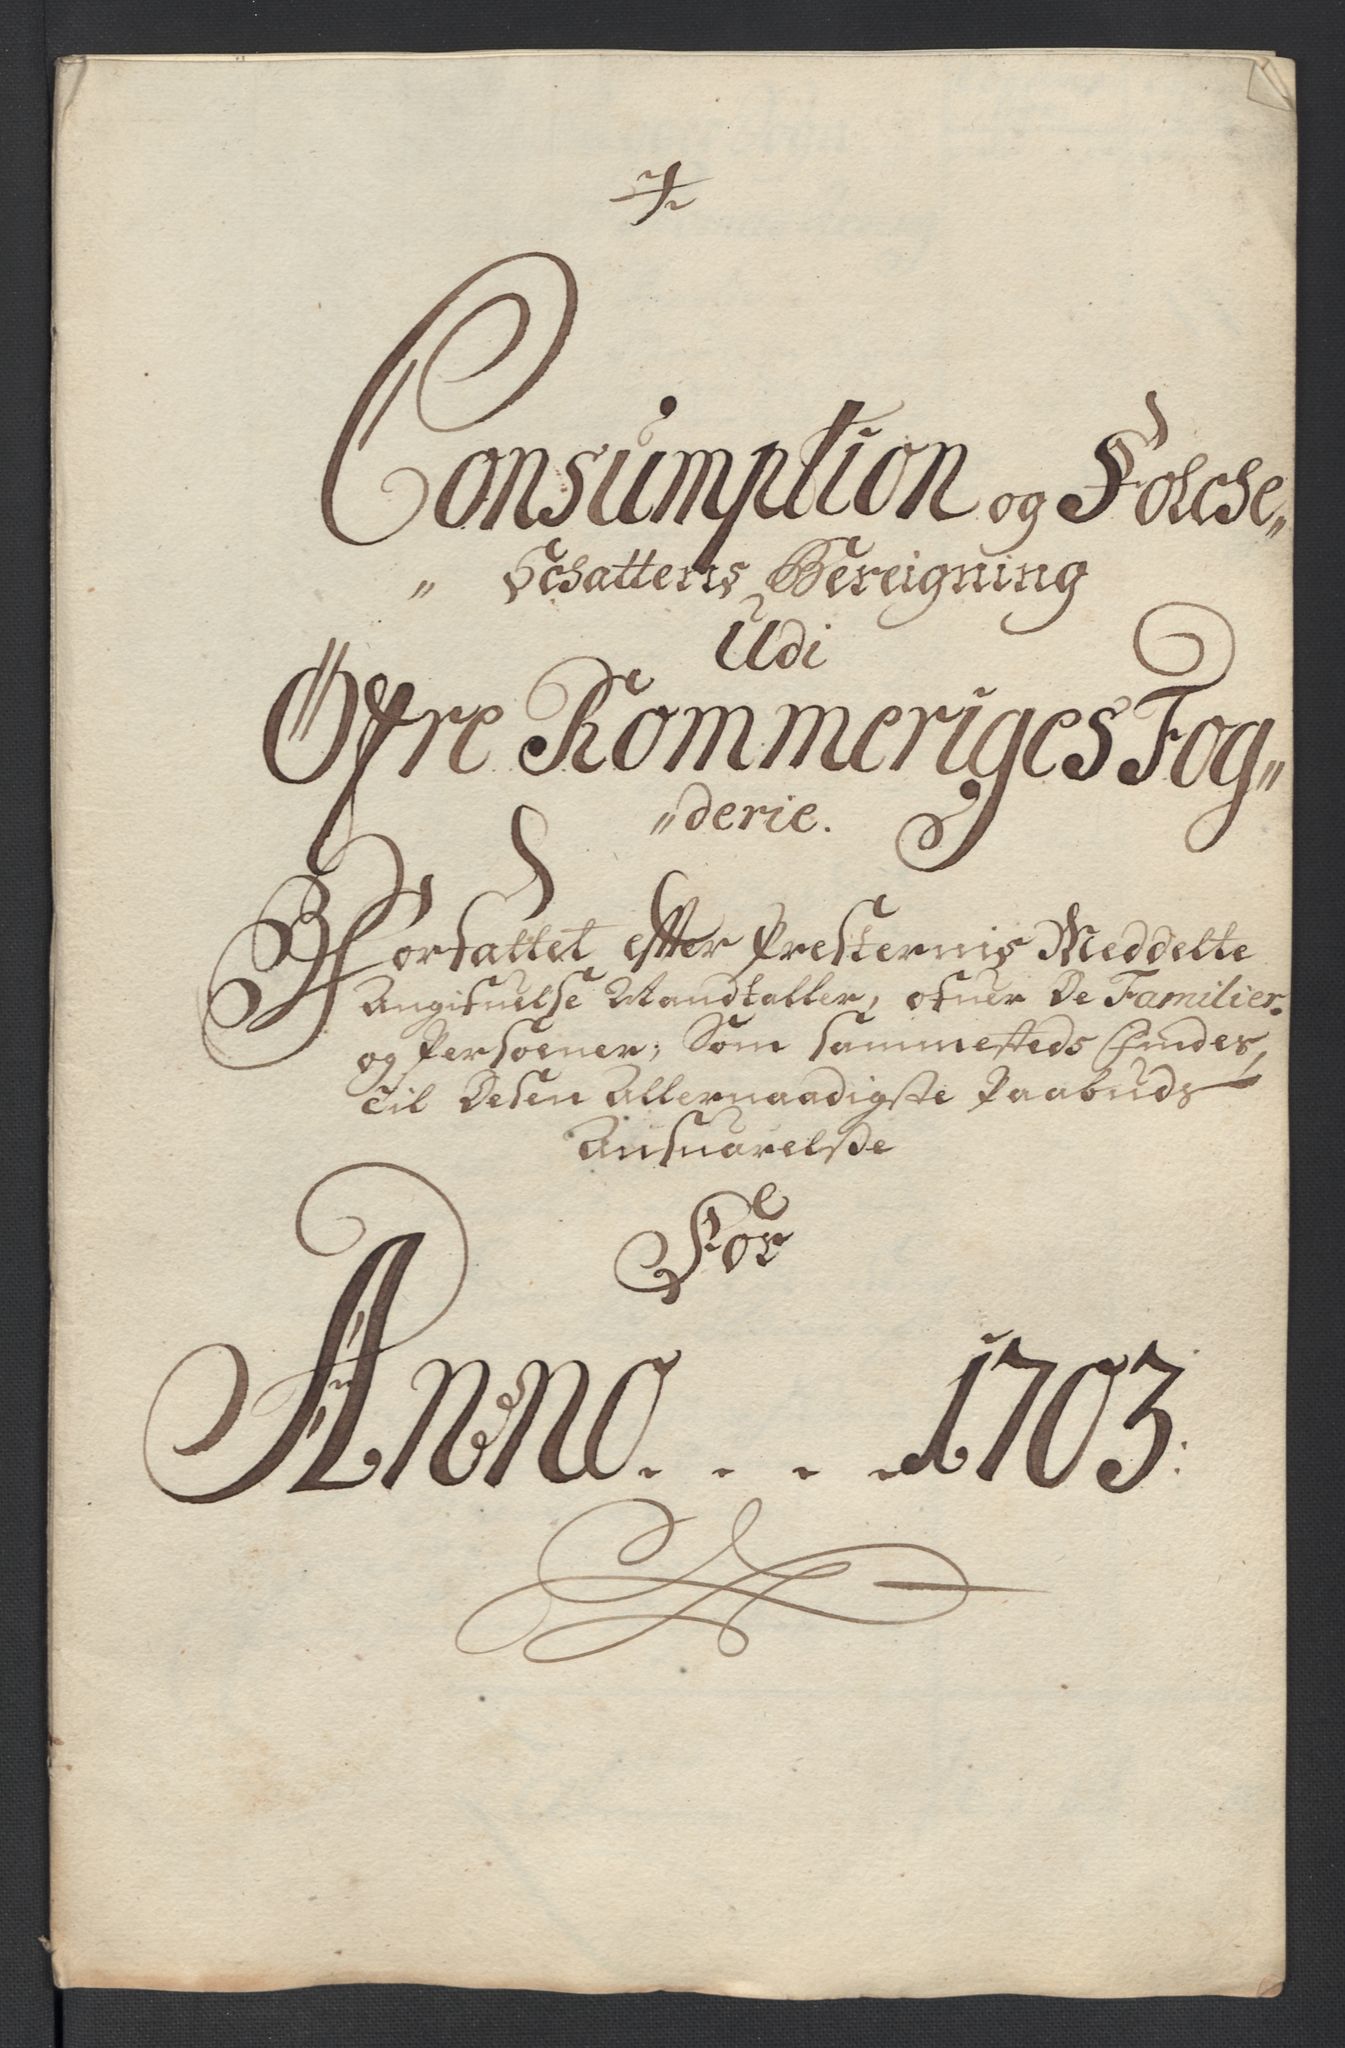 Consumption og Folche„
„ Schattens Bereigning
Udi
Öfre Rommeriges Fog„
„derie.
Forfattet efter Presternis Meddelte
Angifuelse Mandtaller, ofuer De Familier
og Persoener; Som sammesteds findes,
til Desen Allernaadigste Paabuds
Ansuarelsse
For
Anno....1703.